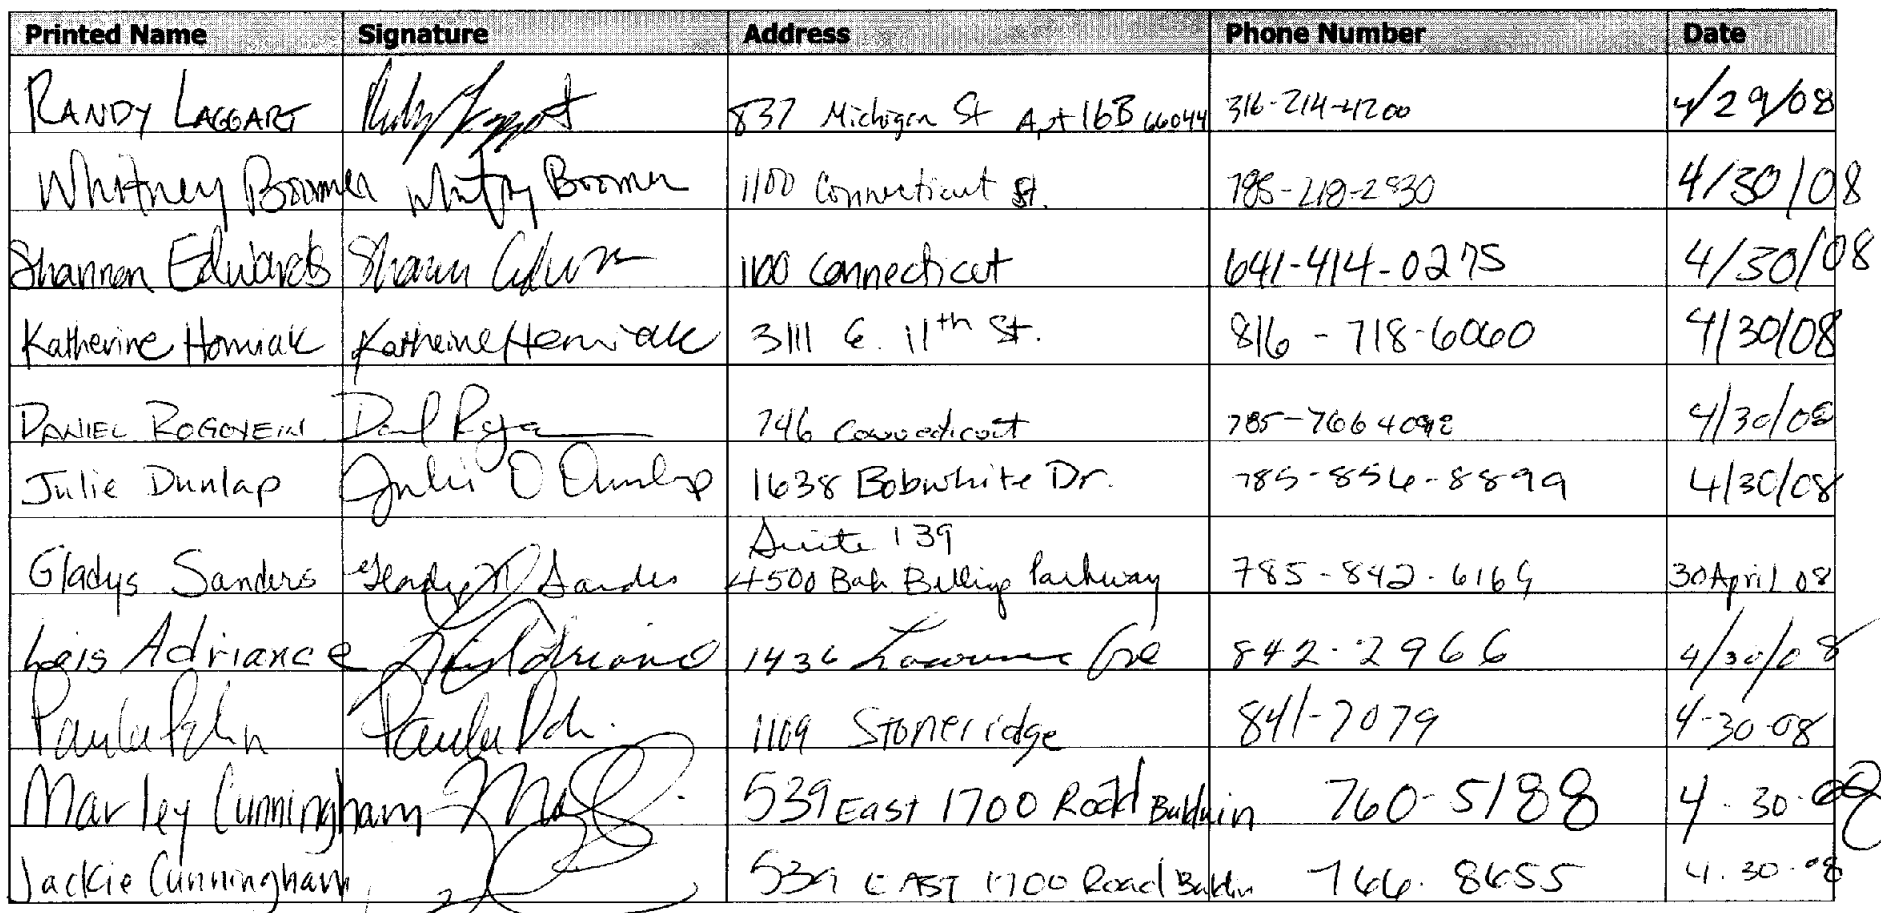 Printed Name Signature Address Phone Number Date
RANDY LAGGART 837 Michigan St Apt 16B 66044 316-214-4200 4/29/08
Whitney Boomer Whitney Boomer 1100 Connecticut St. 785-218-2830 4/30/08
Shannon Edwards Shannon 1100 Connecticut 641-414-0275 4/30/08
Katherine Homiak Katherine Homiak 3111 E. 11th St. 816-718-6060 4/30/08
DANIEL ROGOVEIN 746 Connecticut 785-766 4098 4/30/08
Julie Dunlap Julie D Dunlap 1638 Bobwhite Dr. 785-856-8899 4/30/08
Suite 139
Gladys Sanders Gladys Sanders 4500 Bob Billings Parkway 785-842-6169 30 April 08
Lois Adriance Lois Adriance 1436 842-2966 4/30/08
Paula Paula 1109 Stoneridge 841-7079 4-30-08
Marley Cunningham 539 East 1700 Road Baldwin 760-5188 4-30-08
Jackie Cunningham 539 EAST 1700 Road Baldwin 766-8655 4.30.08